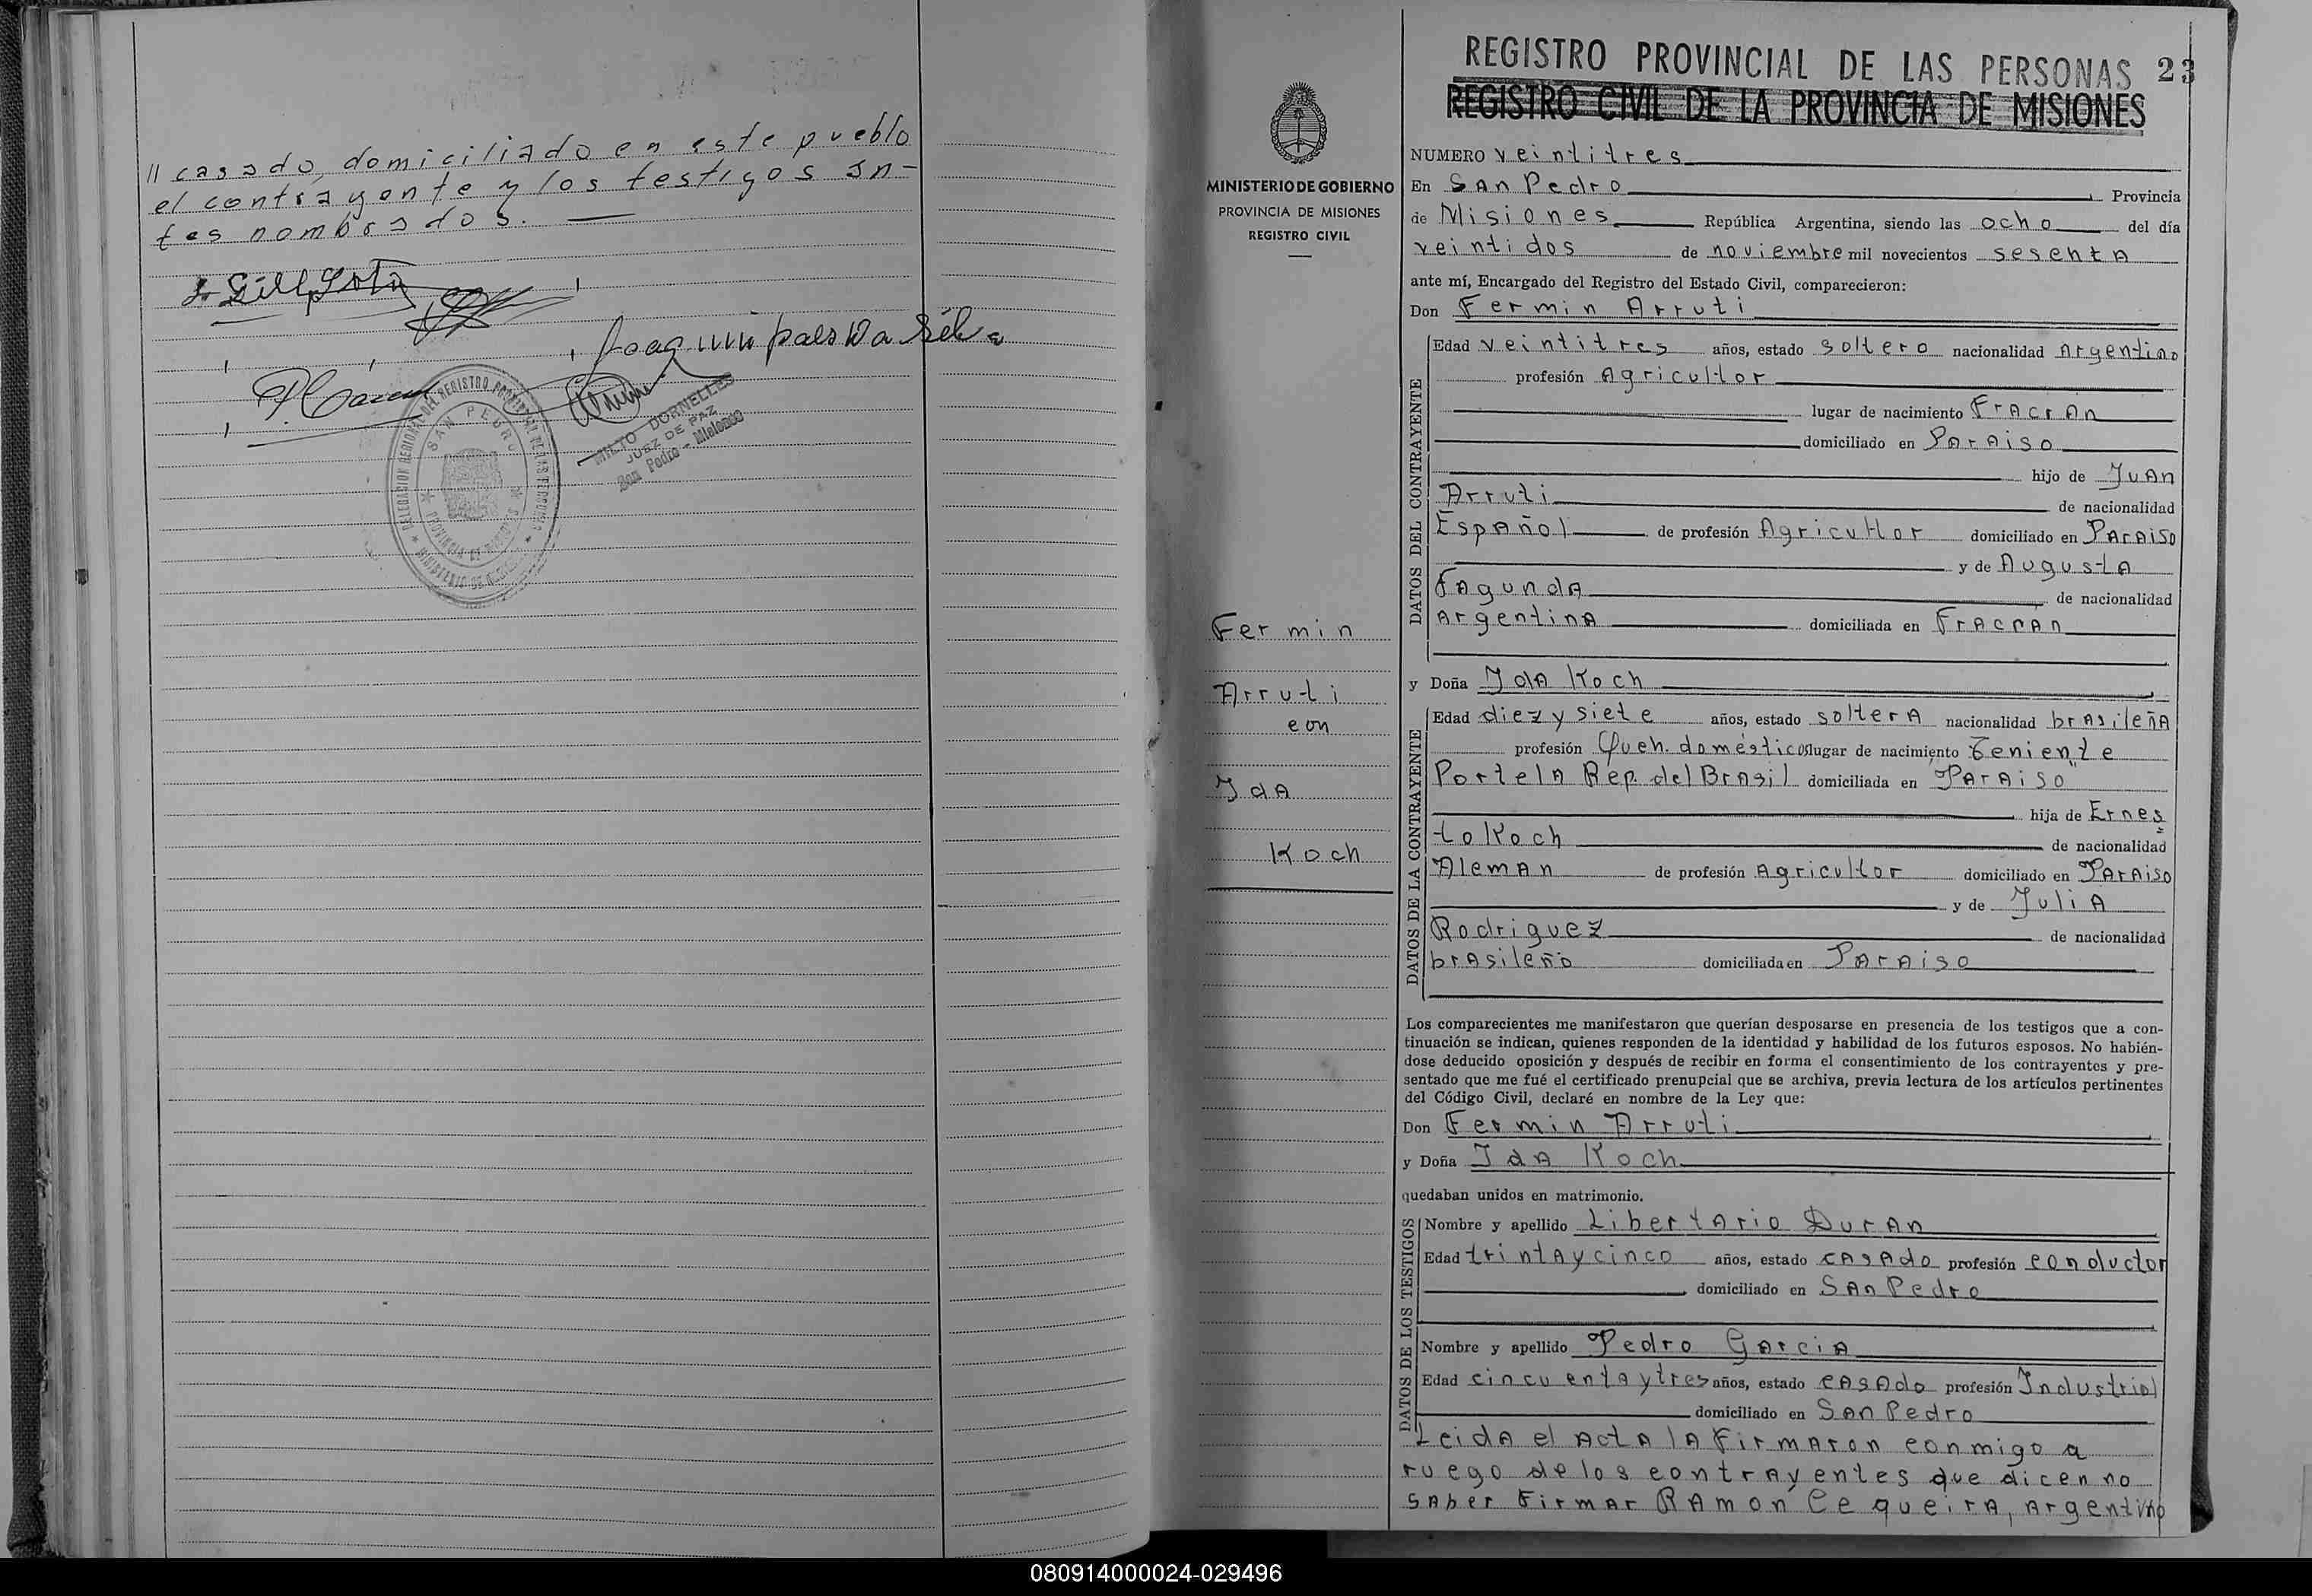 // casado, domiciliado en este pueblo
el contrayente y los testigos an-
tes nombrados.
Joaquin paes Da Silva
DELEGACION REGIONAL DEL REGISTRO PROVINCIAL DE LAS PERSONAS
SAN PEDRO
PROVINCIA DE MISIONES
MINISTERIO DE GOBIERNO
DORNELLES
JUEZ DE PAZ
San Pedro - Misiones
REGISTRO PROVINCIAL DE LAS PERSONAS 23
REGISTRO CIVIL DE LA PROVINCIA DE MISIONES
MINISTERIO DE GOBIERNO
PROVINCIA DE MISIONES
REGISTRO CIVIL
Fermin
Arruti
con
Ida
Koch
NUMERO veintitres
En San Pedro, Provincia
de Misiones República Argentina, siendo las ocho del día
veintidos de noviembre mil novecientos sesenta
ante mí, Encargado del Registro del Estado Civil, comparecieron:
Don Fermin Arruti
DATOS DEL CONTRAYENTE
Edad veintitres años, estado soltero nacionalidad Argentino
profesión Agricultor
lugar de nacimiento Fracran
domiciliado en Paraiso
hijo de Juan
Arruti de nacionalidad
Español de profesión Agricultor domiciliado en Paraiso
y de Augusta
Fagunda de nacionalidad
Argentina domiciliada en Fracran
y Doña Ida Koch,
DATOS DE LA CONTRAYENTE
Edad diez y siete años, estado soltera nacionalidad brasileña
profesión Queh. domésticos lugar de nacimiento Teniente
Portela Rep. del Brasil domiciliada en "Paraiso"
hija de Ernes
to Koch de nacionalidad
Aleman de profesión Agricultor domiciliado en Paraiso
y de Julia
Rodriguez de nacionalidad
brasileño domiciliada en Paraiso
Los comparecientes me manifestaron que querían desposarse en presencia de los testigos que a con-
tinuación se indican, quienes responden de la identidad y habilidad de los futuros esposos. No habién-
dose deducido oposición y después de recibir en forma el consentimiento de los contrayentes y pre-
sentado que me fué el certificado prenupcial que se archiva, previa lectura de los artículos pertinentes
del Código Civil, declaré en nombre de la Ley que:
Don Fermin Arruti,
y Doña Ida Koch
quedaban unidos en matrimonio.
DATOS DE LOS TESTIGOS
Nombre y apellido Libertario Duran,
Edad trintaycinco años, estado casado profesión conductor
domiciliado en San Pedro
Nombre y apellido Pedro Garcia
Edad cincuentaytres años, estado casado profesión Industrial
domiciliado en San Pedro
Leida el Acta la Firmaron conmigo a
ruego de los contrayentes que dicen no
saber Firmar Ramón Cequeira, argentino
080914000024-029496